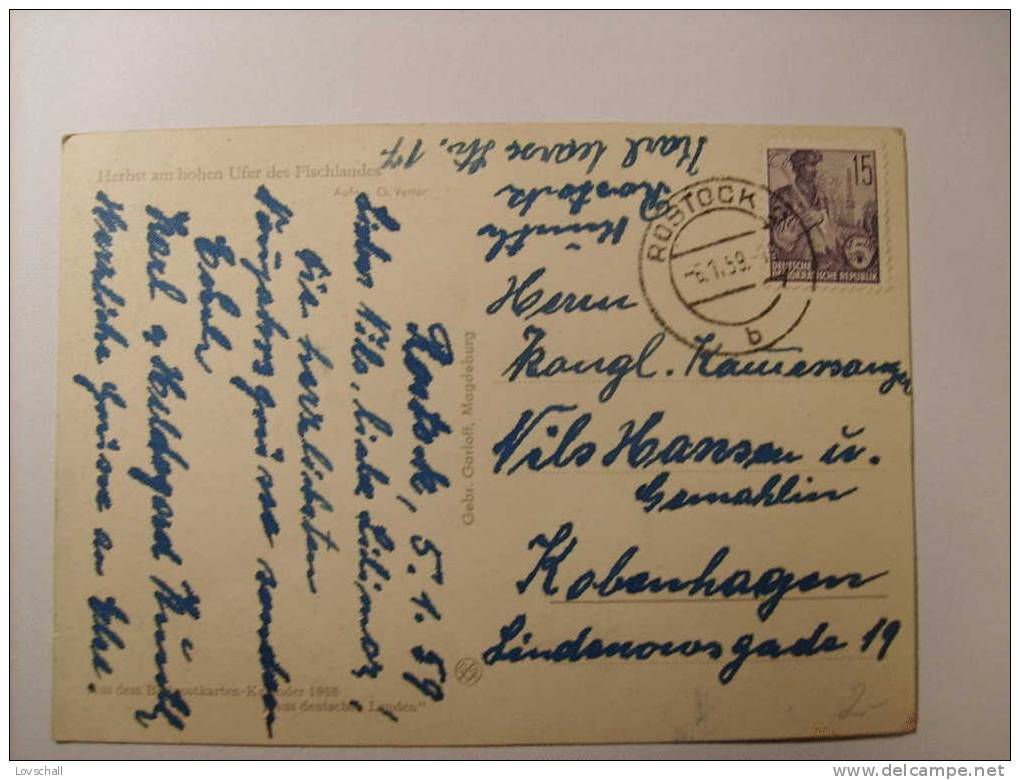 Herbst am hohen Ufer des Fischlandes
Aufn. G. Vetter
Rostock, 5.1.59
Lieber Nils, liebe
die herzlichsten
Neujahrsgrüsse senden
Euch
Karl u. Hildegard
Herzliche Grüsse an
Aus dem Bildpostkarten-Kalender 1958
aus deutschen Landen"
Gebr. Garloff, Magdeburg
Rostock
Karl Marx Str. 17
ROSTOCK
-6.1.59.-
b
15
5
DEUTSCHE
DEMOKRATISCHE REPUBLIK
Herrn
Kongl. Kammersanger
Nils Hansen u.
Gemahlin
Kobenhagen
Lindenowsgade 19
2-
Lovschall
delcampe.net